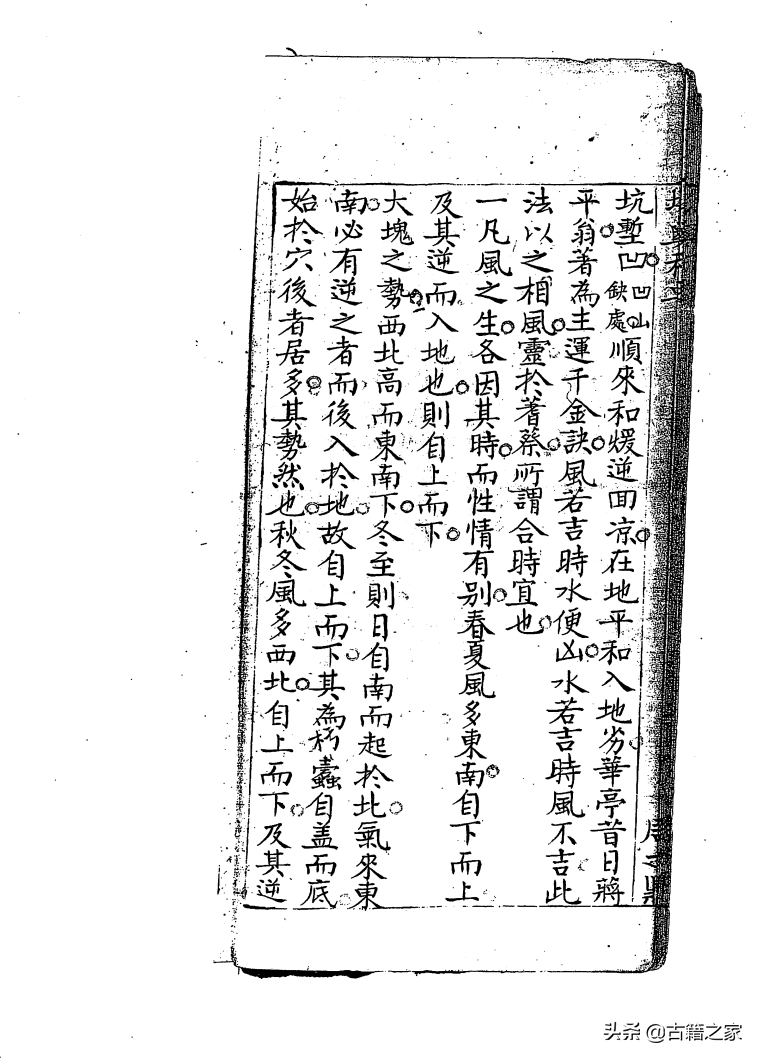 坑塹凹凹山缺處順來和煖逆回凉在地平和入地劣華亭昔日蔣
平翁著為主運千金訣風若吉時水便凶水若吉時風不吉此
法以之相風靈於蓍蔡所謂合時宜也
一凡風之生各因其時而性情有别春夏風多東南自下而上
及其逆而入地也則自上而下
大塊之勢西北高而東南下冬至則日自南而起於北氣來東
南必有逆之者而後入於地故自上而下其為朽蠹自盖而底
始於穴後者居多其勢然也秋冬風多西北自上而下及其逆
头条 @古籍之家